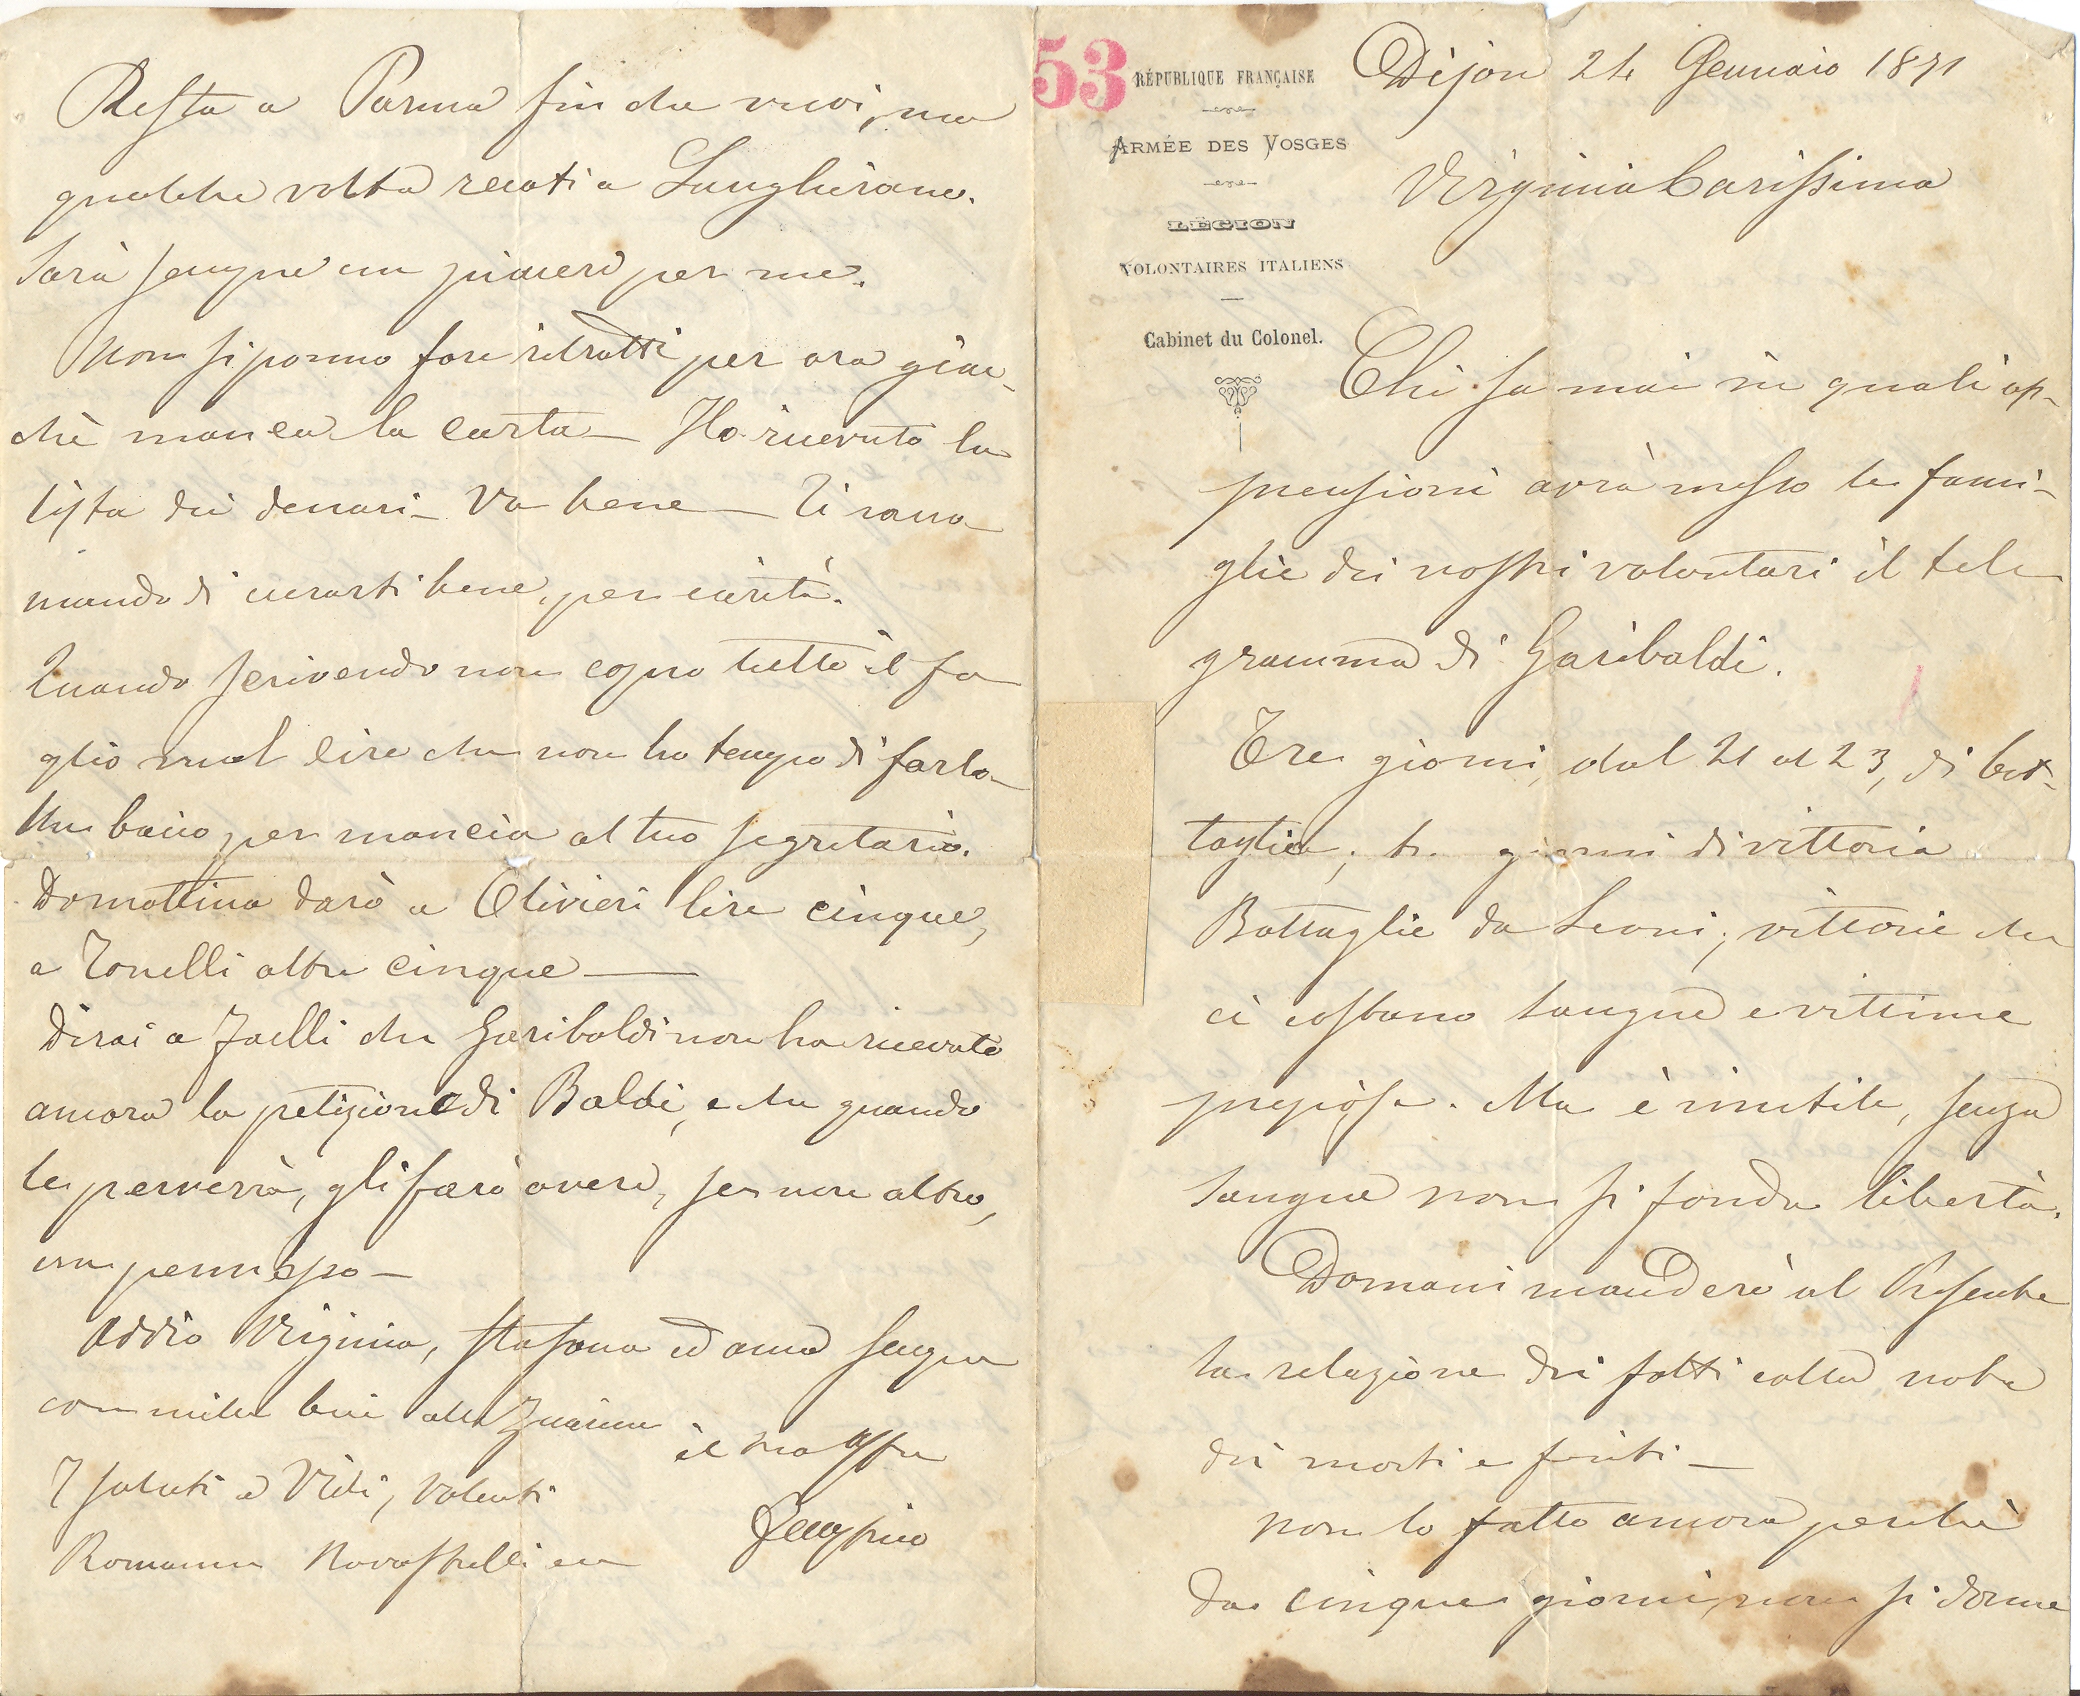 53
RÉPUBLIQUE FRANÇAISE
ARMÉE DES VOSGES
LÉGION
VOLONTAIRES ITALIENS
Cabinet du Colonel.
Dijon 24 Gennaio 1871
Virginia Carissima
Chi sa mai in quali ap-
prensioni avrà messo le fami-
glie dei nostri volontari il tele
gramma di Garibaldi.
Tre giorni, dal 21 al 23, di bat-
taglia, tre giorni di vittoria
Battaglie da Leoni; vittorie che
ci costano sangue e vittime
preziose. Ma è inutile, senza
sangue non si fonda libertà.
Domani manderò al Presente
la relazione dei fatti colla nota
dei morti e feriti –
non lo fatto ancora perchè
da cinque giorni, non si dorme
Resta a Parma fin che vuoi, ma
qualche volta recati a Langhirano.
Sarà sempre un piacere per me.
Non si ponno fare ritratti per ora giac-
chè manca la carta – Ho ricevuto la
lista dei denari – Va bene – Ti racco
mando di curarti bene, per carità.
Quando scrivendo non copro tutto il fo
glio vuol dire che non ho tempo di farlo
Un bacio per mancia al tuo segretario.
Domattina darò a Olivieri lire cinque,
a Tonelli altre cinque —
Dirai a Faelli che Garibaldi non ha ricevuto
ancora la petizione di Baldi, e che quando
le perverrà, gli farò avere, se non altro,
un permesso –
Addio Virginia, sta sana ed ama sempre
con mille baci alla
il tuo affe
I saluti a Vidi, Valenti